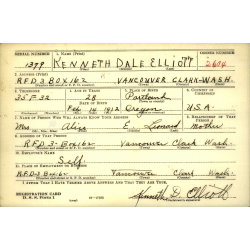 SERIAL NUMBER 1. NAME (Print) ORDER NUMBER
1377 KENNETH DALE ELLIOTT 2604
2. ADDRESS (Print)
R.F.D. 3 BOX 162 VANCOUVER CLARK-WASH.
3. TELEPHONE 4. AGE IN YEARS 5. PLACE OF BIRTH 6. COUNTRY OF CITIZENSHIP
35-F-32 28 Portland
DATE OF BIRTH
Feb 14 1912 Oregon U.S.A.
7. NAME OF PERSON WHO WILL ALWAYS KNOW YOUR ADDRESS 8. RELATIONSHIP OF THAT PERSON
Mrs Alice E. Leonard Mother
9. ADDRESS OF THAT PERSON
R.F.D-3-Box162 Vancouver Clark Wash.
10. EMPLOYER'S NAME
Self
11. PLACE OF EMPLOYMENT OR BUSINESS
R.F.D-3 Box162 Vancouver Clark Wash.
I AFFIRM THAT I HAVE VERIFIED ABOVE ANSWERS AND THAT THEY ARE TRUE.
REGISTRATION CARD
D. S. S. Form 1
Kenneth D. Elliott